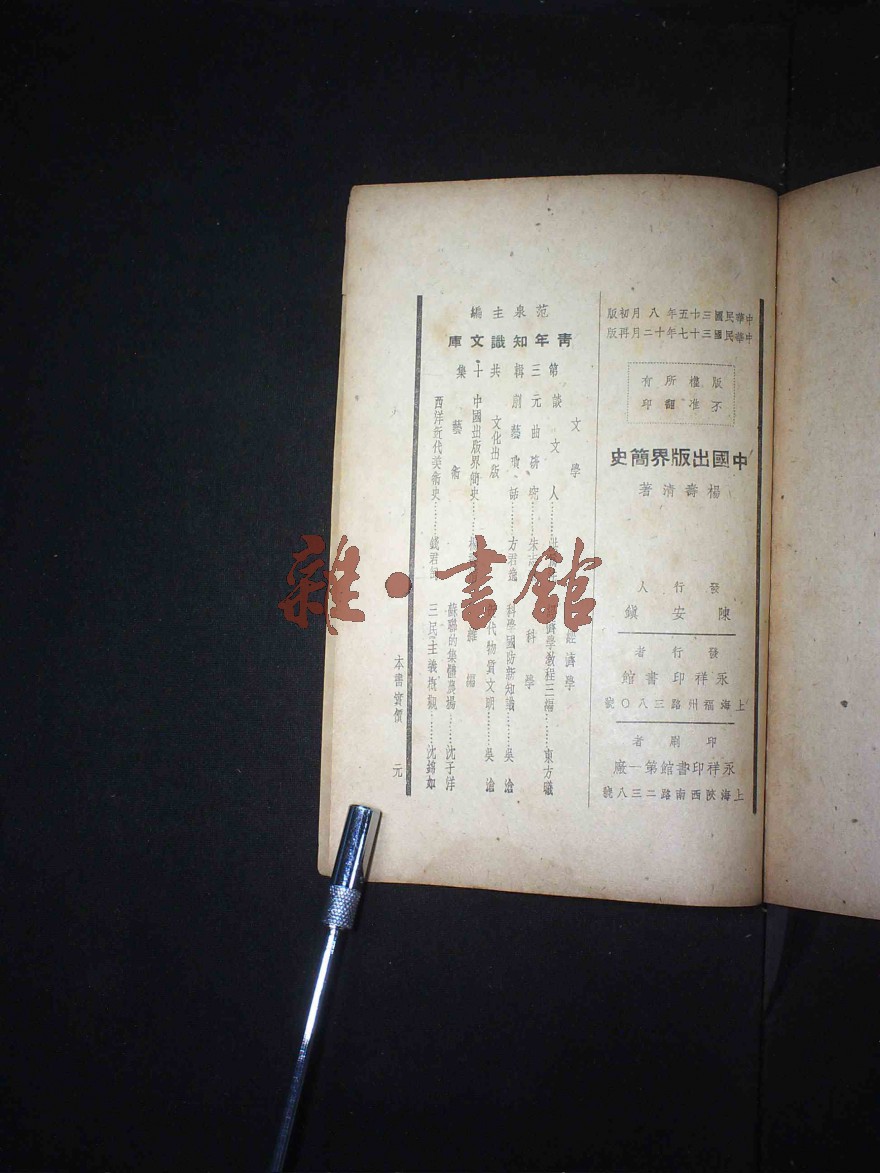 中華民國三十五年八月初版
中華民國三十七年十二月再版
版權所有
不准翻印
中國出版界簡史
楊壽清著
發行人
陳安鎮
發行者
永祥印書館
上海福州路三八〇號
印刷者
永祥印書館第一廠
上海陝西南路二三八號
范泉主編
青年知識文庫
第三輯共十集
文學
談文人……
元曲研究……朱志
劇藝 話……方君逸
文化出版
中國出版界簡史……
藝術
西洋近代美術史……錢君
經濟學
經濟學教程三編……東方
科學
科學國防新知識……吳滄
代物質文明……吳滄
雜編
蘇聯的集體農場……沈子洋
三民主義概觀……沈 如
本書實價 元
雜·書館